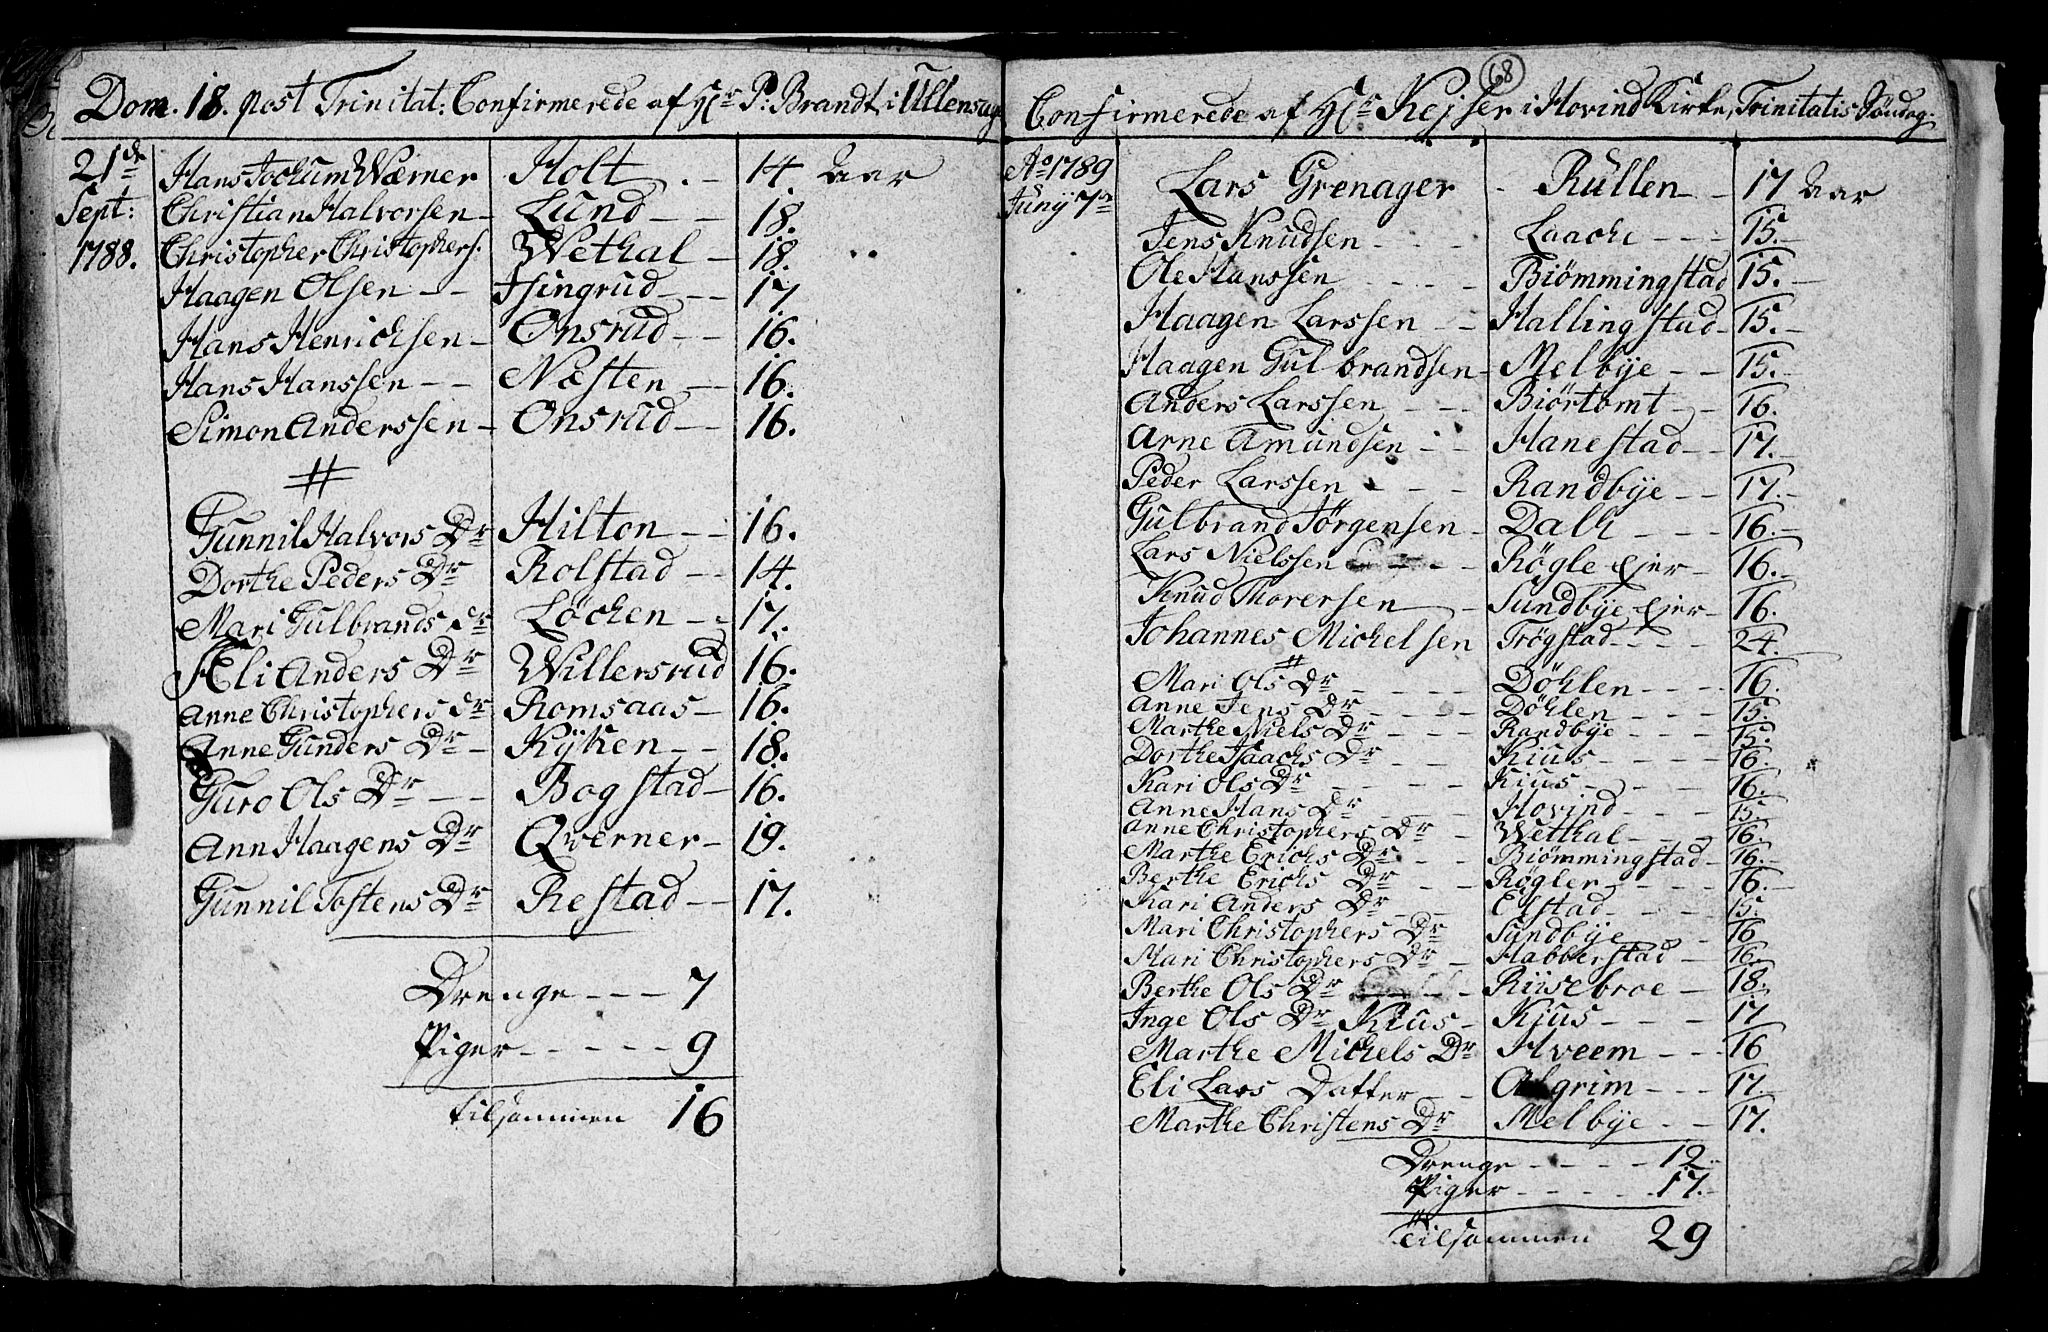 Dom. 18. post Trinitat: Confirmerede af Hr P: Brandt i Ullensag.
21de Hans Jochum Wærner Holt . - 14. Aar
Sept: Christian Halvorsen - Lund - - 18.
1788. Christopher Christophers: Wethal - 18.
Haagen Olsen - - Isingrud - - - 17
Hans Henrichsen - Onsrud - - 16.
Hans Hanssen - - Næsten - - 16.
Simon Anderssen - Onsrud - - 16.
#
Gunnil Halvors Dr Hilton - - 16.
Dorthe Peders Dr Rolstad - - 14.
Mari Gulbrands dr Løchen - - 17.
Eli Anders Dr Willersrud 16.
Anne Christophers dr Romsaas - 16.
Anne Gunders Dr - Kÿken - - 18.
Guro Ols Dr - - Bogstad - 16.
Ann Haagens Dr Qverner - 19.
Gunnil Tostens Dr Restad - - 17.
Drenge - - - 7
Piger - - - - - 9
tilsammen 16
68
Confirmerede af Hr Kejser i Hovind Kirke, Trinitatis Søndag.
Ao 1789 Lars Grenager - Rullen - 17 Aar
Junÿ 7de Jens Knudsen - - - Laache - - - 15.
Ole Hanssen - - - - Biömmingstad 15.
Haagen Larssen - - Hallingstad - 15. -
Haagen Gulbrandsen - Melbÿe - - 15. -
Anders Larssen - - - Biörtomt - - 16.
Arne Amundsen - - Hanestad - - 17. -
Peder Larssen - - - Randbÿe - - 17. -
Gulbrand Jörgensen - Dalh - - - 16. -
Lars Nielssen - - - Rögle Ejer - 16. -
Knud Thorersen - Sundbÿe Ejer - 16.
Johannes Michelsen Trögstad - - - - 24.
#
Mari Ols Dr - - - - Döhlen - - - - 16.
Anne Jens Dr - - - - Döhlen - - - - 15.
Marthe Niels Dr - - - Randbÿe - - - 15.
Dorthe Isaachs Dr - - Kius - - - - - 16.
Kari Ols Dr - - - - Kius - - - - 16.
Anne Hans Dr - - - Hovind - - - 15.
Anne Christophers Dr - Wethal - - - 16.
Marthe Erichs Dr - - Biömmingstad - 16. -
Berthe Erichs Dr - - Rögler - - - - 16. -
Kari Anders Dr - - Elstad - - - - 15.
Mari Christophers Dr Sundbÿe - 16
Mari Christophers Dr - Habberstad - 16.
Berthe Ols Dr - - - Riisebroe - 18.
Inge Ols Dr Kius - Kjus - - - - 17
Marthe Michels Dr Hveem - - - 16
Eli Lars Datter - - Algrim - - - 17.
Marthe Christens Dr Melbÿe - - 17.
Drenge - - - - - 12.
Piger - - - - - - 17.
Tilsammen 29